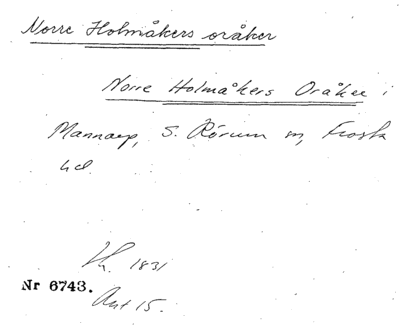 Norre Holmåkers oråker
Norre Holmåkers Oråker i
Mannarp, S. Rörum sn, Frosta
hd.
1831
Nr 6743.
Akt 15.